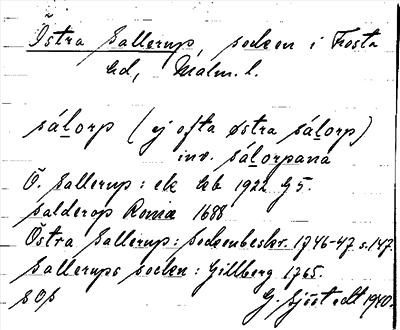 Östra Sallerup, socken i Frosta
hd, Malm. l.
sálorp (ej ofta østra sálorp)
inv. sálorpana
Ö. Sallerup: ek kb 1922 G5.
Salderop Ronia 1688
Östra Sallerup: Sockenbeskr. 1746-47 s. 147
Sallerups socken: Gillberg 1765.
SOS G. Sjöstedt 1940.